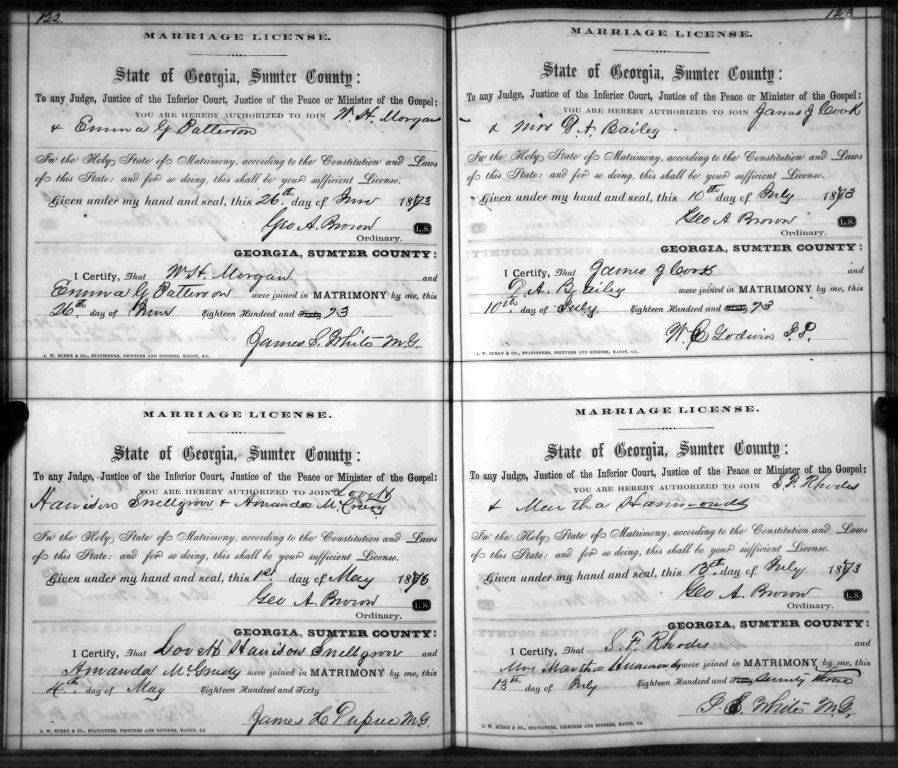 122.
MARRIAGE LICENSE.
State of Georgia, Sumter County:
To any Judge, Justice of the Inferior Court, Justice of the Peace or Minister of the Gospel:
YOU ARE HEREBY AUTHORIZED TO JOIN W. H. Morgan
& Emma G Patterson
In the Holy State of Matrimony, according to the Constitution and Laws
of this State: and for so doing, this shall be your sufficient License.
Given under my hand and seal, this 26th day of June 1873
Geo A. Brown L.S.
Ordinary.
GEORGIA, SUMTER COUNTY:
I Certify, That W H. Morgan and
Emma G Patterson were joined in MATRIMONY by me, this
26th day of June Eighteen Hundred and Sixty 73
James S. White M.G.
J. W. BURKE & CO., STATIONERS, PRINTERS AND BINDERS, MACON, GA.
MARRIAGE LICENSE.
State of Georgia, Sumter County:
To any Judge, Justice of the Inferior Court, Justice of the Peace or Minister of the Gospel:
YOU ARE HEREBY AUTHORIZED TO JOIN Lovett
Harrison Snellgrove & Amanda
In the Holy State of Matrimony, according to the Constitution and Laws
of this State: and for so doing, this shall be your sufficient License.
Given under my hand and seal, this 1st day of May 1873
Geo A. Brown L.S.
Ordinary.
GEORGIA, SUMTER COUNTY:
I Certify, That Lovett Harrison Snellgrove and
Amanda were joined in MATRIMONY by me, this
4th day of May Eighteen Hundred and Sixty
James H Dupree M.G.
J. W. BURKE & CO., STATIONERS, PRINTERS AND BINDERS, MACON, GA
123
MARRIAGE LICENSE.
State of Georgia, Sumter County:
To any Judge, Justice of the Inferior Court, Justice of the Peace or Minister of the Gospel:
YOU ARE HEREBY AUTHORIZED TO JOIN James J Cook
& Mrs D A. Bailey.
In the Holy State of Matrimony, according to the Constitution and Laws
of this State: and for so doing, this shall be your sufficient License.
Given under my hand and seal, this 10th day of July 1873
Geo A. Brown L.S.
Ordinary.
GEORGIA, SUMTER COUNTY:
I Certify, That James J Cook and
D. A. Bailey were joined in MATRIMONY by me, this
10th day of July Eighteen Hundred and Sixty 73
W. E Godwin J.P.
J. W. BURKE & CO., STATIONERS, PRINTERS AND BINDERS, MACON, GA.
MARRIAGE LICENSE.
State of Georgia, Sumter County:
To any Judge, Justice of the Inferior Court, Justice of the Peace or Minister of the Gospel:
YOU ARE HEREBY AUTHORIZED TO JOIN S. F. Rhodes
& Martha Hammonds
In the Holy State of Matrimony, according to the Constitution and Laws
of this State: and for so doing, this shall be your sufficient License.
Given under my hand and seal, this 13th day of July 1873
Geo A. Brown L.S.
Ordinary.
GEORGIA, SUMTER COUNTY:
I Certify, That S. F. Rhodes and
Mrs Martha were joined in MATRIMONY by me, this
13th day of July Eighteen Hundred and Sixty Seventy three
White M.G.
J. W. BURKE & CO., STATIONERS, PRINTERS AND BINDERS, MACON, GA.